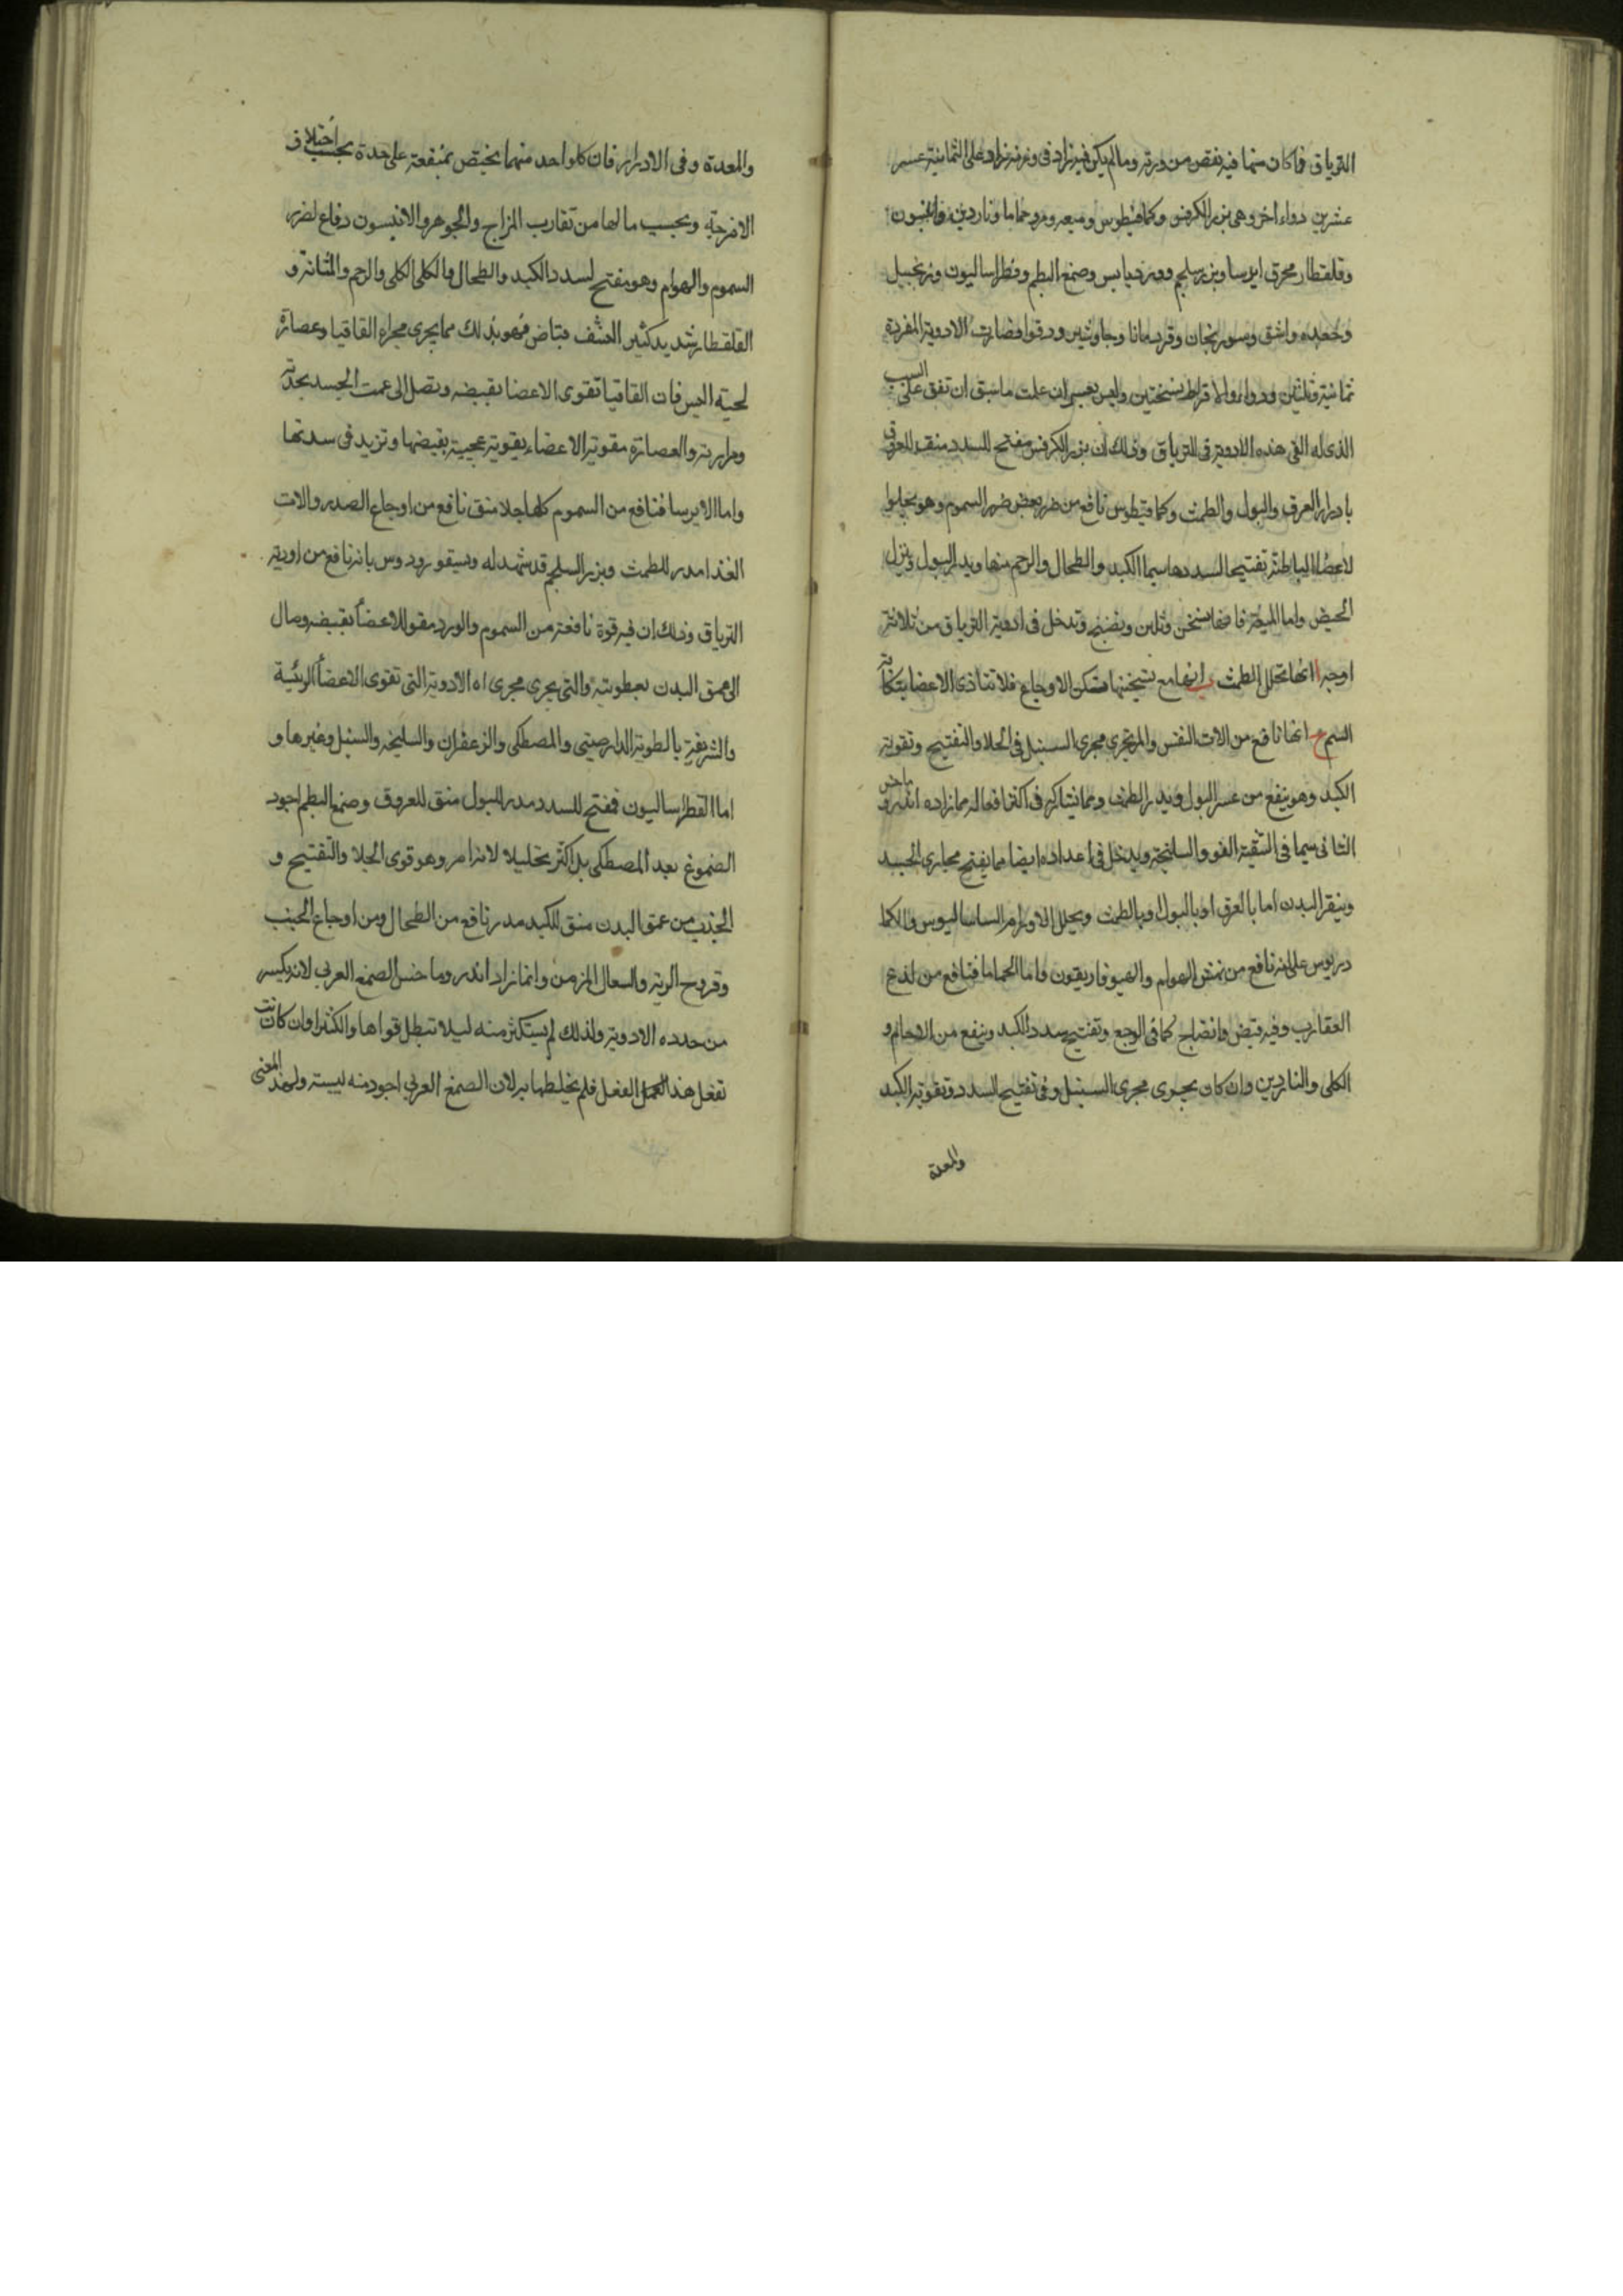 الترياق فما كان منها فيه نقص من وزنه وما لم يكن فيه زاد في وزنه فزاد على الثمانية عسر
عشرين دواء اخر وهي بزر الكرفس وكمافيطوس وميعه ومر وحماما وناردين وانيسون
وقلقطار محرق ايرسا وبزر سلجم وورد يابس وصمغ البطم وفطراساليون وزنجبيل
وجعده واشق وسورنجان وقردمانا وجاوشير ودوقوا فصارت الادوية المفردة
ثمانية وثلثين دواء والاقراط نسختين وليس بعسر ان علمت ما سبق ان تقف على السبب
الذي له القى هذه الادوية في الترياق وذلك ان بزر الكرفس مفتح للسدد منقب للعرق
بادرار العرق والبول والطمث وكمافيطوس نافع من ضر بعض ضرر السموم وهو يجلوا
لاعضا الباطنة تفتيحا لسددها سيما الكبد والطحال والرحم منها ويدر البول وينزل
الحيض واما الميعة فانها تسخن وتلين وينضج وتدخل في ادوية الترياق من ثلاثة
اوجه ا انها تحلل الطمث ب انها مع تسخينها تسكن الاوجاع فلا تتاذى الاعضا بنكاية
السم ج انها نافع من الات النفس والمر يجري مجرى السنبل في الجلا والتفتيح وتقوية
الكبد وهو ينفع من عسر البول ويدر الطمث ومما يشاكله في اكثر افعاله مما زاده اندروماخس
الثاني سيما في التنقية الفو والسليخة ويدخل في اعداده ايضا مما يفتح مجاري الجسد
وينقي البدن اما بالعرق او بالبول او بالطمث ويحلل الاورام الساساليوس والكما
دريوس على انه نافع من نهش الهوام والهيوفاريقون واما الحماما فنافع من لذع
العقارب وفيه قبض وانضاج كما في الوجع وتفتيح سدد الكبد وينفع من الارحام و
الكلى والناردين وان كان يجري مجرى السنبل وفي تفتيح السدد وتقوية الكبد
والمعدة
والمعدة وفي الادرار فان كل واحد منهما يختص بمنفعة على حدة بحسب اختلاف
الامزجة وبحسب ما لها من تقارب المزاج والجوهر والانيسون دفاع لضرر
السموم والهوام وهو مفتح لسدد الكبد والطحال والكلى الكلى والرحم والمثانة و
القلقطار شديد كثير القشف قباض فهو بذلك مما يجري مجراه القاقيا وعصارة
لحية التيس فان القاقيا تقوى الاعضا بقبضه وتصل الى عمق الجسد بحدته
ومرارته والعصارة مقوية الاعضاء بقوية عجيبة بقبضها وتزيد في سدتها
واما الايرسا فنافع من السموم كلها جلا منق نافع من اوجاع الصدر والات
الغذا مدر للطمث وبزر السلجم قد شهد له ديسقوريدوس بانه نافع من ادوية
الترياق وذلك ان فيه قوة نافعة من السموم والورد مقو للاعضا بقبضه وصال
الى عمق البدن بعطريته والتي يجري مجراه الادوية التي تقوى الاعضا الرئيسة
والشريفة بالعطرية الدارصيني والمصطكي والزعفران والسليخه والسنبل وغيرها و
اما الفطراساليون فمفتح للسدد مدر للبول منق للعروق وصمغ البطم اجود
الصموغ بعد المصطكى بل اكثر تحليلا لانه امر وهو قوى الجلا والتفتيح و
الجذب من عمق البدن منق للكبد مدر نافع من الطحال ومن اوجاع الجنب
وقروح الرية والسعال المزمن وانما زاد اندروماخس الصمغ العربي لانه يكسر
من حدده الادوية ولذلك لم يستكثر منه ليلا تبطل قواها والكثيرا وان كانت
تفعل هذا العمل الفعل فلم يخلطها به لان الصمغ العربي اجود منه ليسته ولهذا المعنى